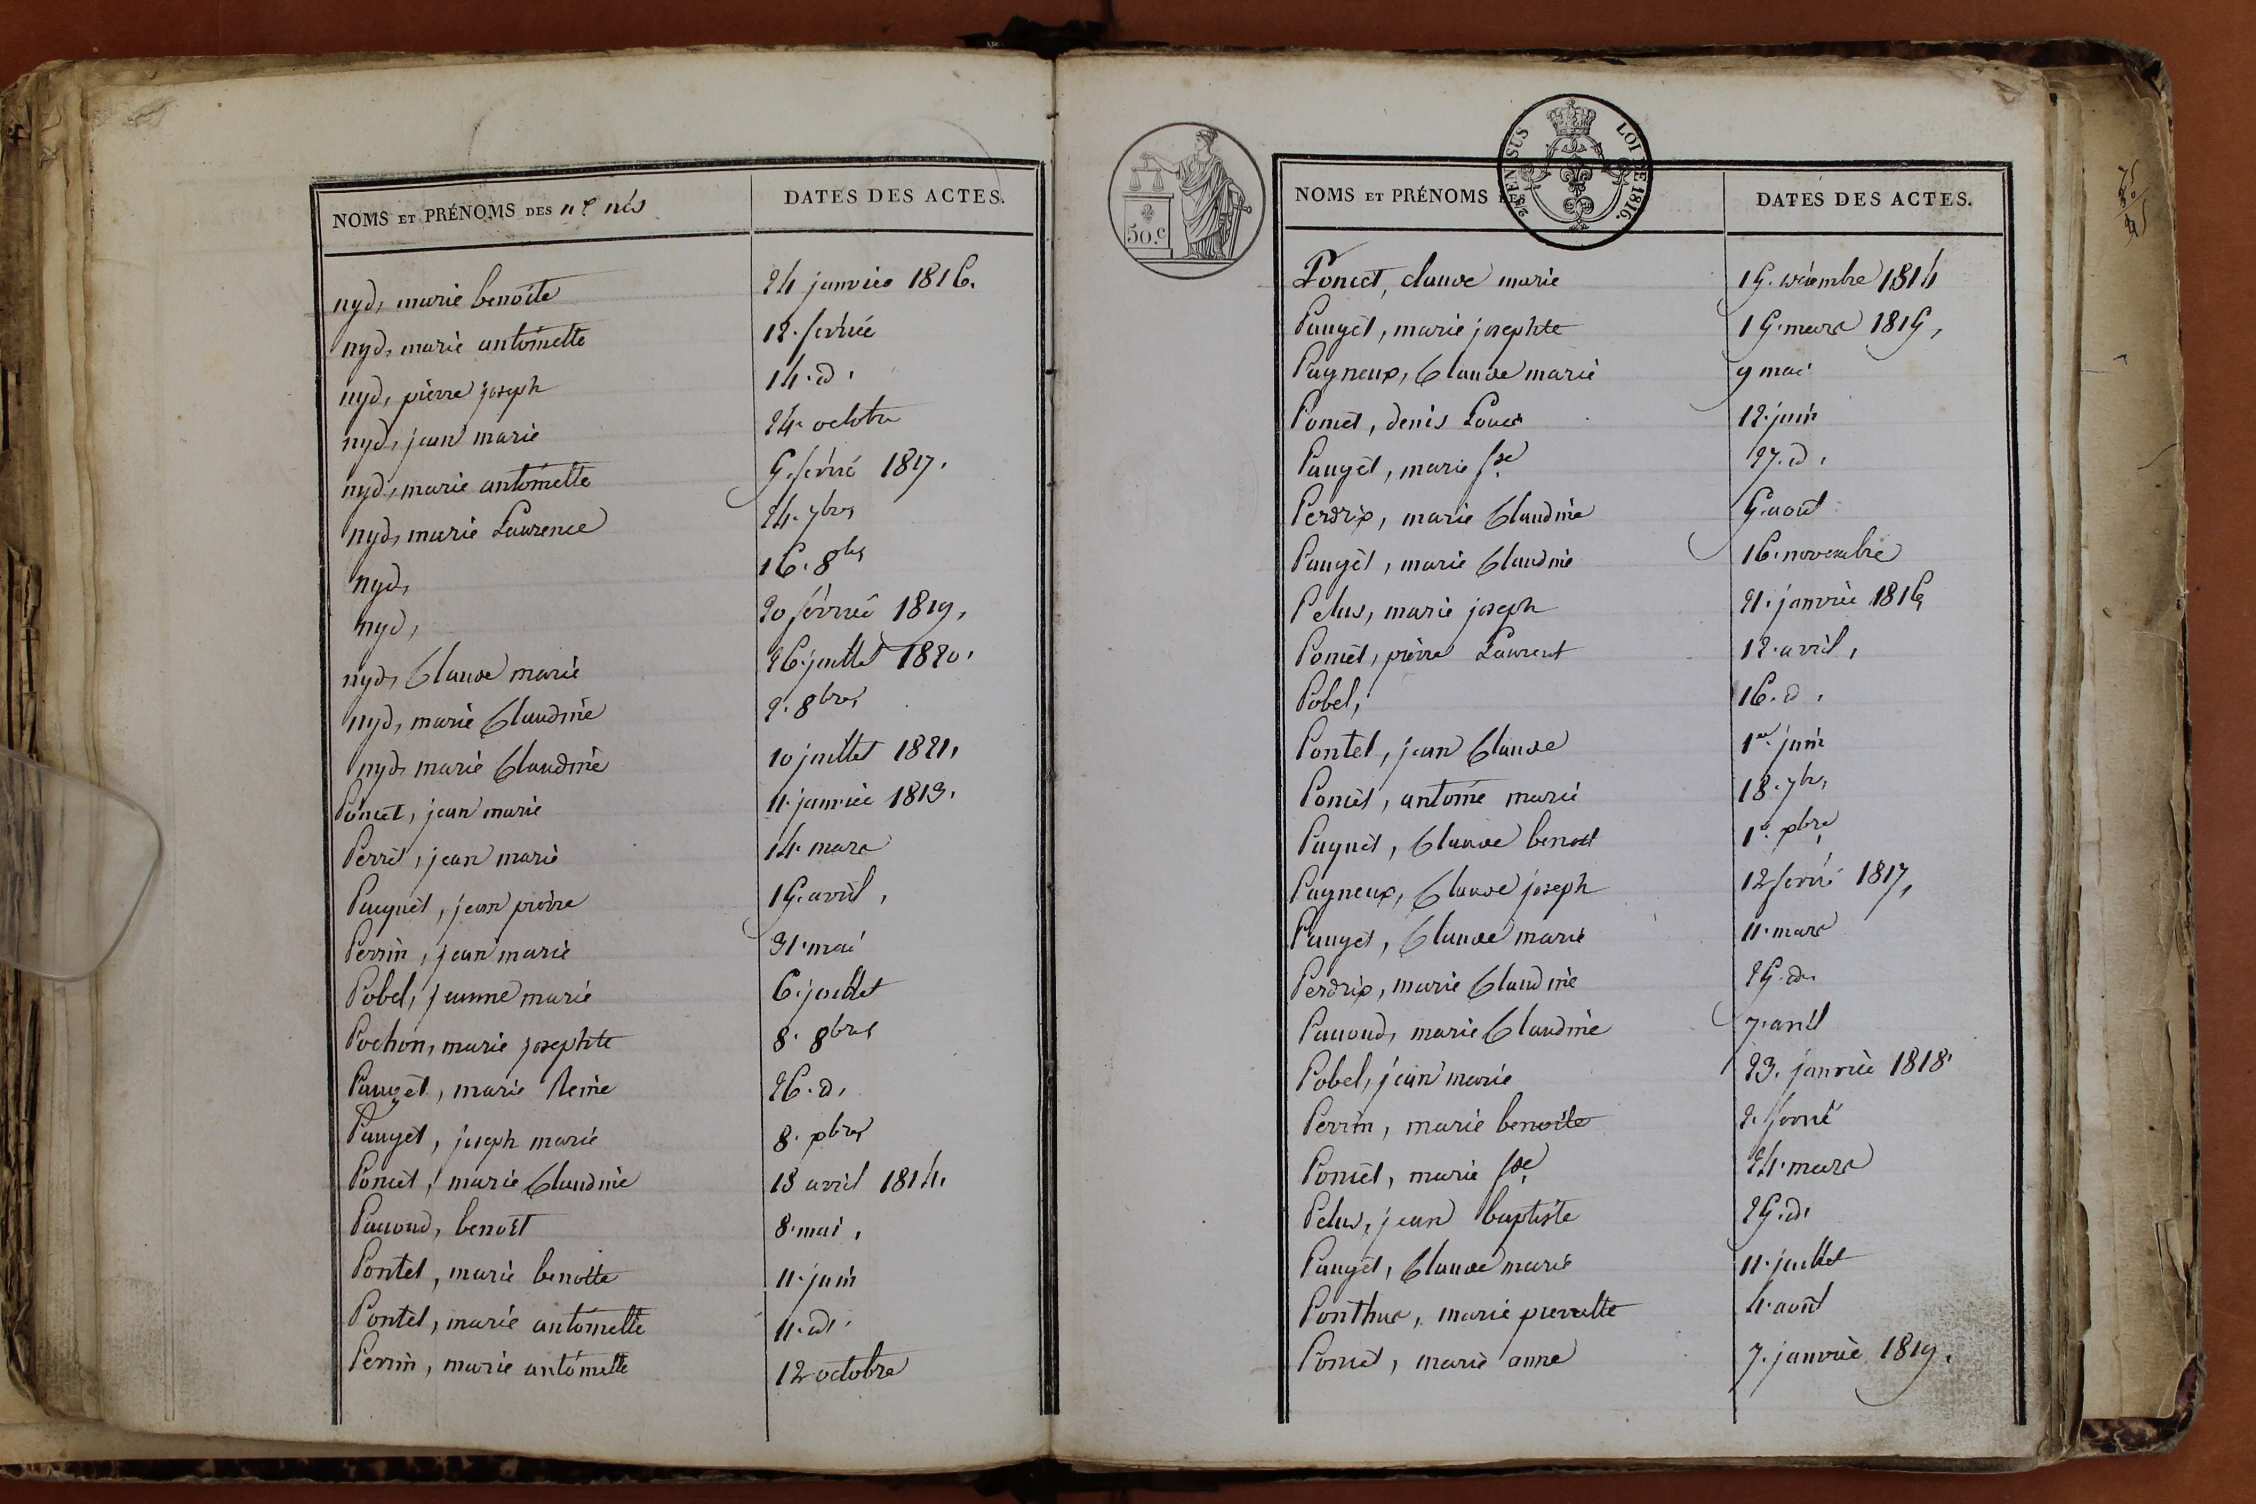 NOMS ET PRÉNOMS DES nx nés DATES DES ACTES.
nyd, marie benoite 24 janvier 1816.
nyd, marie antoinette 12. février
nyd, pierre joseph 14. d.
nyd, jean marie 24. octobre
nyd, marie antoinette 5. février 1817.
nyd, marie Laurence 24. 7bres
nyd, 16. 8bres
nyd, 20 février 1819,
nyd, Claude marie 26. juillet 1820.
nyd, marie Claudine 2. 8bres
nyd, marie Claudine 10 juillet 1821,
Poncet, jean marie 11. janvier 1813.
Perret, jean marie 14. mars
Pacquet, jean pierre 15. avril,
Perrin, jean marie 31. mai
Pobel, jeanne marie 6. juillet
Pochon, marie josephte 8. 8bres
Pauget, marie Reine 26. d,
Pauget, joseph marie 8. xbres
Poncet, marie Claudine 13 avril 1814.
Pacoud, benoit 8. mai,
Pontet, marie benoite 11. juin
Pontet, marie antoinette 11. d.
Perrin, marie antoinette 12 octobre
50.c
2/10 EN SUS LOI DE 1816.
NOMS ET PRÉNOMS DES DATES DES ACTES.
Poncet, claude marie 15. décembre 1814
Pauget, marie josephte 15. mars 1815,
Pagneux, Claude marie 9 mai
Poncet, denis Louis 12. juin
Pauget, marie fse 27. d.
Perdrix, marie Claudine 5. août
Pauget, marie Claudine 16. novembre
Pelus, marie joseph 21. janvier 1816
Poncet, pierre Laurent 12. avril,
Pobel, 16. d.
Pontet, jean Claude 1er juin
Poncet, antoine marie 18. 7bre,
Paquet, Claude benoit 1er xbre
Pagneux, Claude joseph 12 février 1817,
Pauget, Claude marie 11. mars
Perdrix, marie Claudine 25. d.
Pacoud, marie Claudine 7. avril
Pobel, jean marie 23. janvier 1818.
Perrin, marie benoite 2. février
Poncet, marie fse 24. mars
Pelus, jean baptiste 25. d.
Pauget, Claude marie 11. juillet
Ponthus, marie pierrette 4. août
Poncet, marie anne 7. janvier 1819.